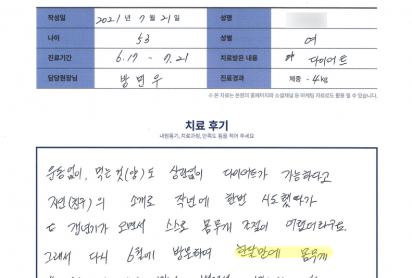 작성일 2021년 7월 21일 성명
나이 53 성별 여
진료기간 6.17 - 7.21 치료받은 내용 다이어트
담당원장님 방민우 진료경과 체중 -4kg
※ 본 치료는 본원의 홈페이지와 소셜채널 등 마케팅 자료로도 활용 될 수 있습니다.
치료 후기
내원동기, 치료과정, 만족도 등을 적어 주세요
운동없이, 먹는것(양)도 상관없이 다이어트가 가능하다고
지인(친구)의 소개로 작년에 한번 시도했다가
갱년기가 오면서 스스로 몸무게 조절이 어렵더라구요.
그래서 다시 6월에 방문하여 한달만에 몸무게